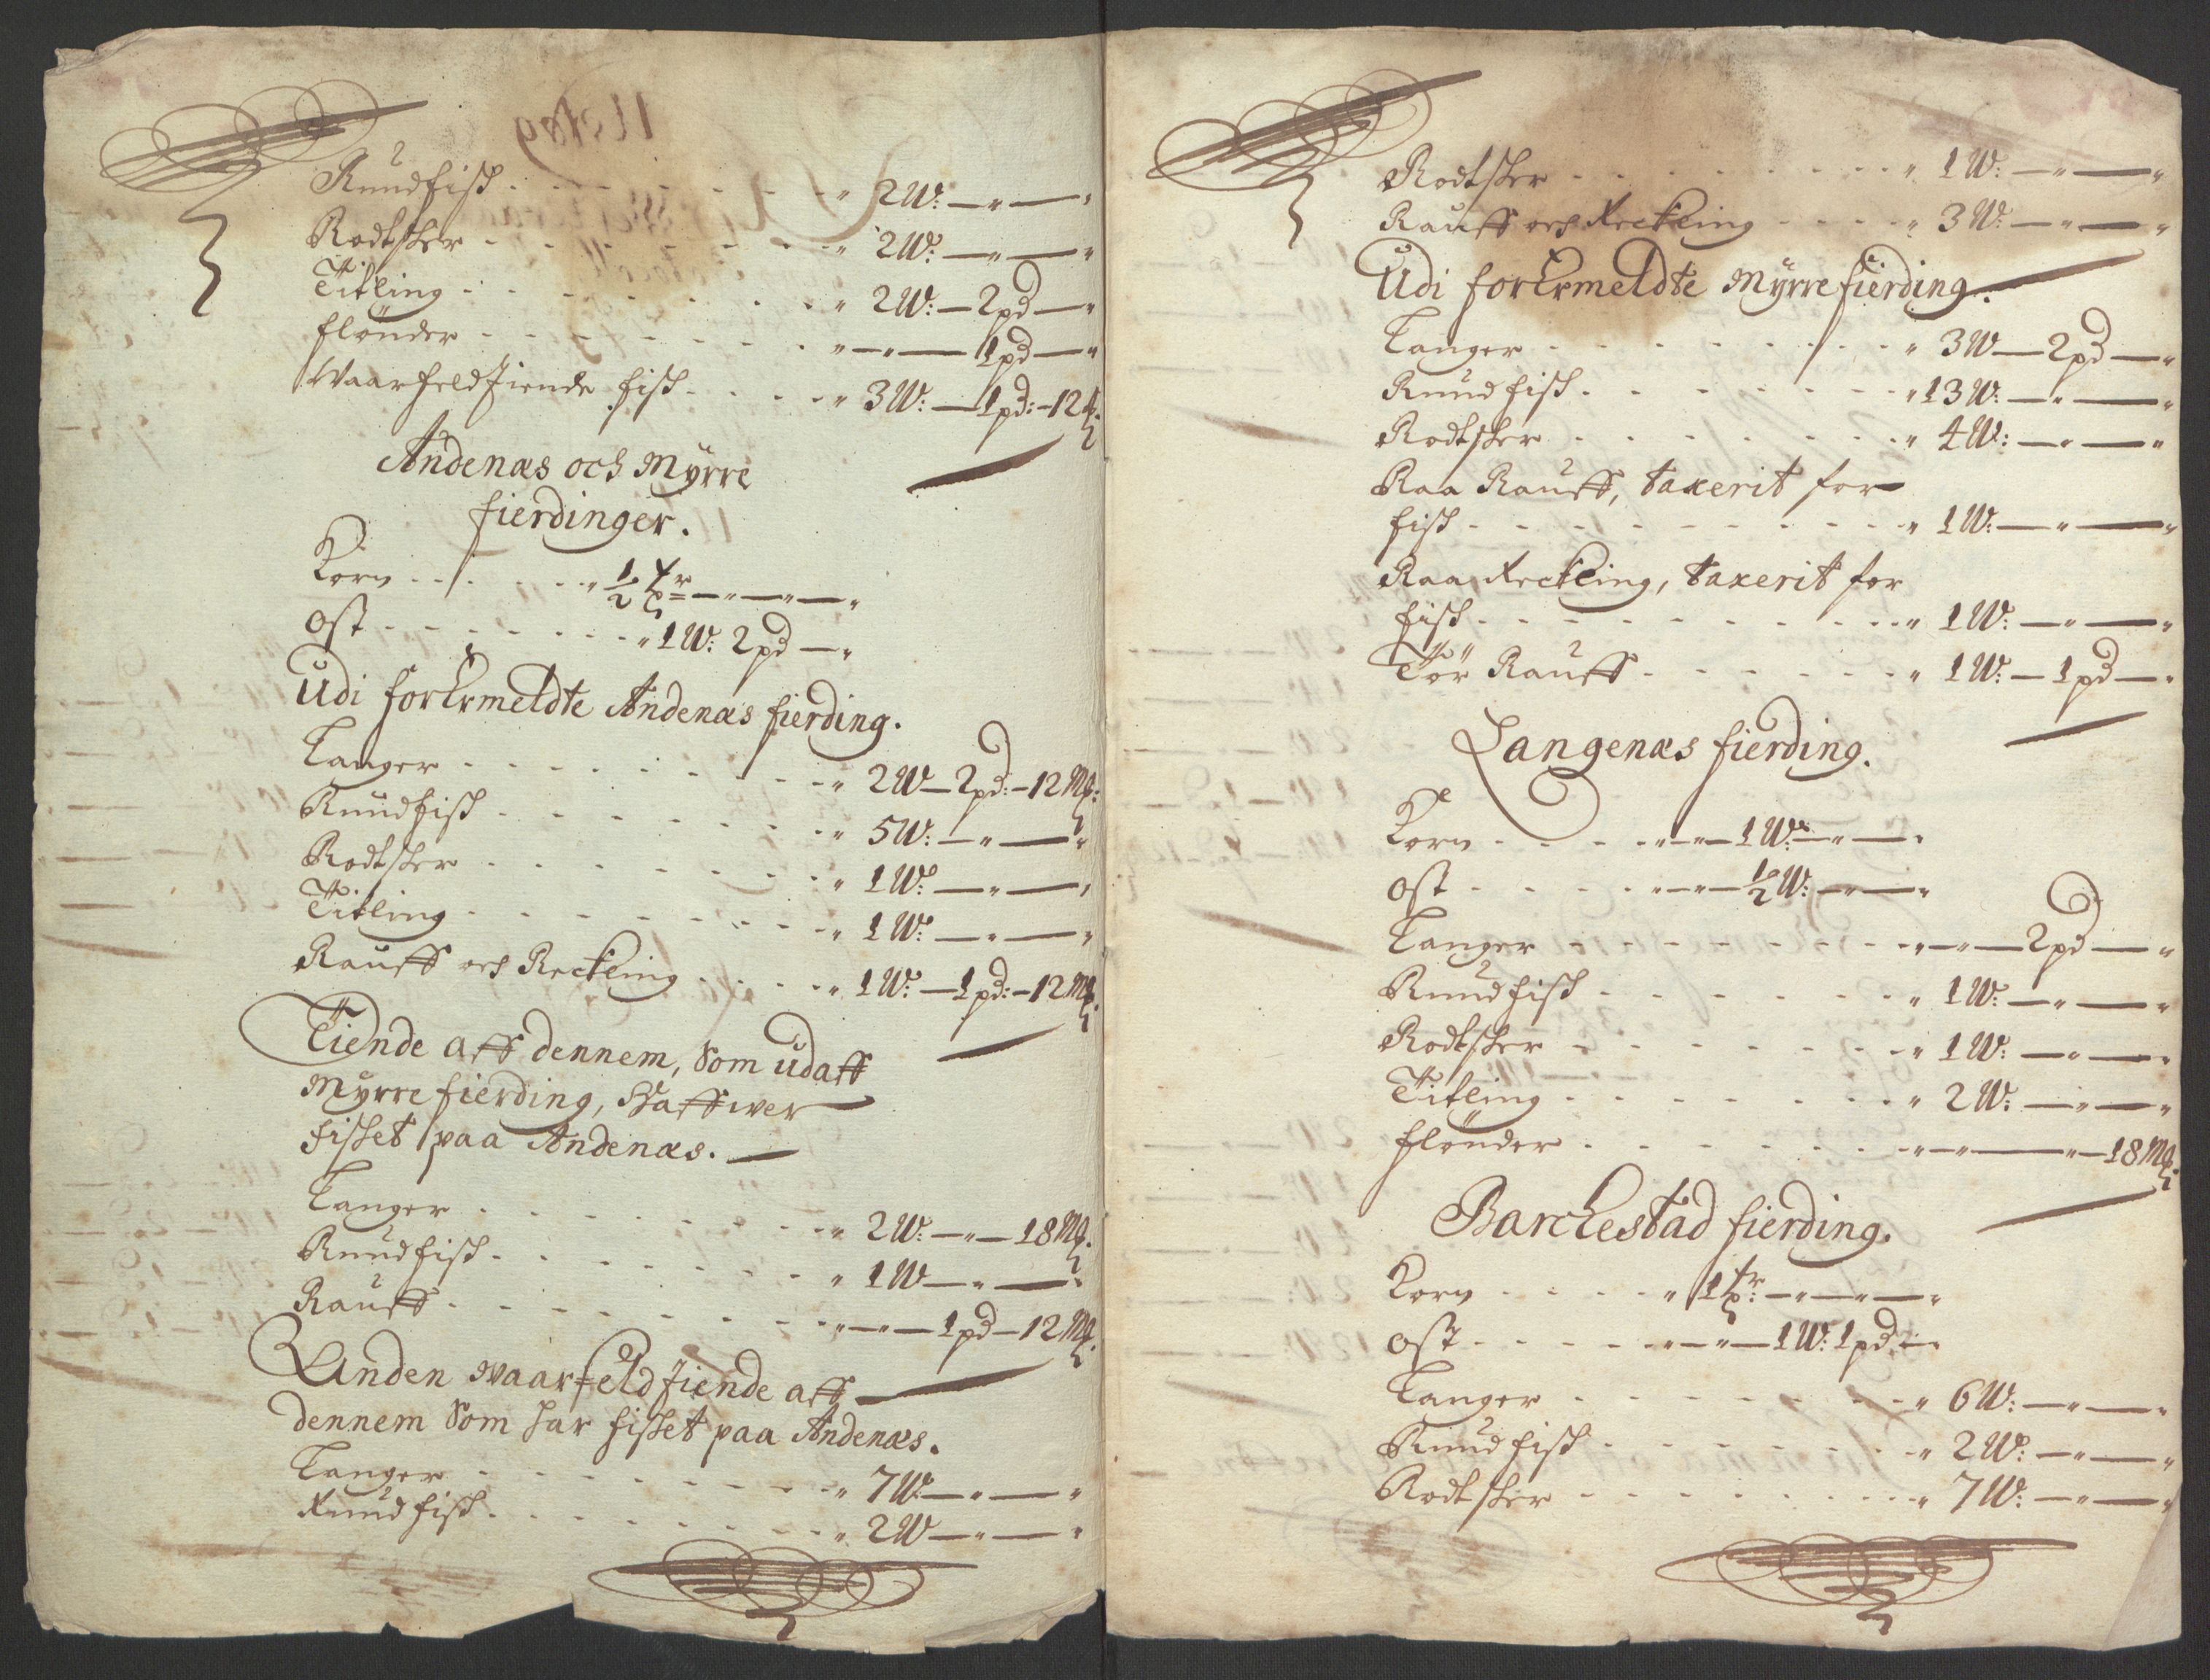 Rundfisk - - - " 2W: — " — "
Rodtsker - - - " 2W: — " — "
Titling - - - " 2W: — 2pd — "
flönder - - - " — " — 1pd — "
Waarfeldtiende fisk - - - " 3W: — 1pd: - 12
Andenæs och Myrre
fierdinger.
Korn - - - " ½ — " — " — "
ost - - - " 1W: 2pd — "
Udi forbemeldte Andenæs fierding.
Langer - - - " 2W — 2pd: - 12 Mk:
Rundfisk - - - " 5W: — " — "
Rodtsker - - - " 1W: — " — "
Titling - - - " 1W: — " — "
Rauff och Reckling - - - " 1W: — 1pd: - 12 Mk.
Tiende aff dennem, Som udaff
Myrre fierding, Haffwer
fisket paa Andenæs. —
Langer - - - " 2W: — " — 18 Mk.
Rundfisk - - - " 1W — " — "
Rauff - - - " — " — 1pd — 12 Mk.
Anden waarfeldtiende aff —
dennem Som har fisket paa Andenæs.
Langer - - - " 7W: — " — "
Rundfisk - - - " 2W — " — "
Rodtsker - - - " 1W: — " — "
Rauff och Reckling - - - " 3W: — " — "
Udi forbemeldte Myrre fierding.
Langer - - - " 3W — 2pd — "
Rundfisk - - - " 13W: — " — "
Rodtsker - - - " 4W: — " — "
Raa Rauff, taxerit for
fisk - - - " 1W: — " — "
Raa Reckling, taxerit for
fisk - - - " 1W: — " — "
Tör Rauff - - - " 1W: — 1pd — "
Langenæs fierding.
Korn - - - " — " — 1W: — " — "
ost - - - " — " — ½W: — " — "
Langer - - - " — " — 2pd — "
Rundfisk - - - " 1W: — " — "
Rodtsker - - - " 1W: — " — "
Titling - - - " 2W: — " — "
flönder - - - " — " — " — 18 Mk.
Barckestad fierding.
Korn - - - " 1 — " — " — "
ost - - - " — " — 1W: 1pd — "
Langer - - - " 6W: — " — "
Rundfisk - - - " 2W: — " — "
Rodtsker - - - " 7W: — " — "